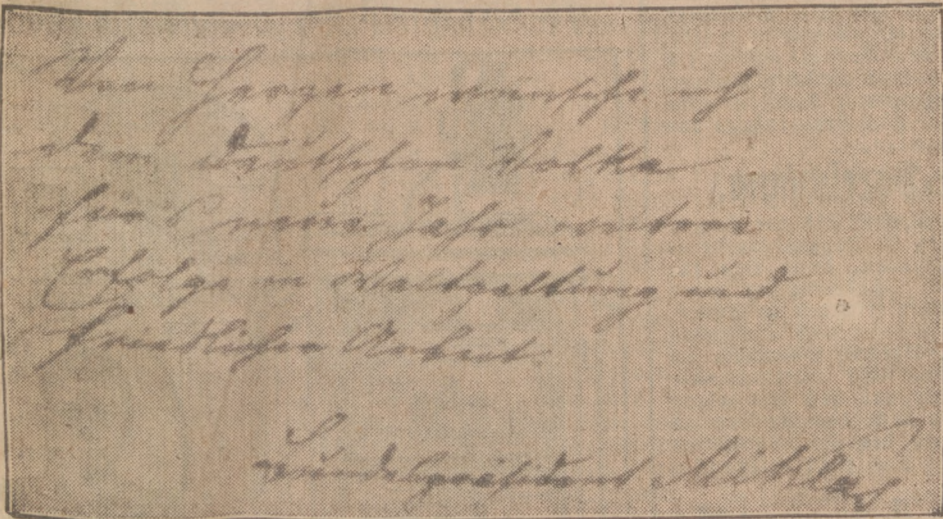 Von Herzen wünsche ich
dem deutschen Volke
für's neue Jahr weitere
Erfolge in Weltgeltung und
friedlicher Arbeit.
Bundespräsident Miklas